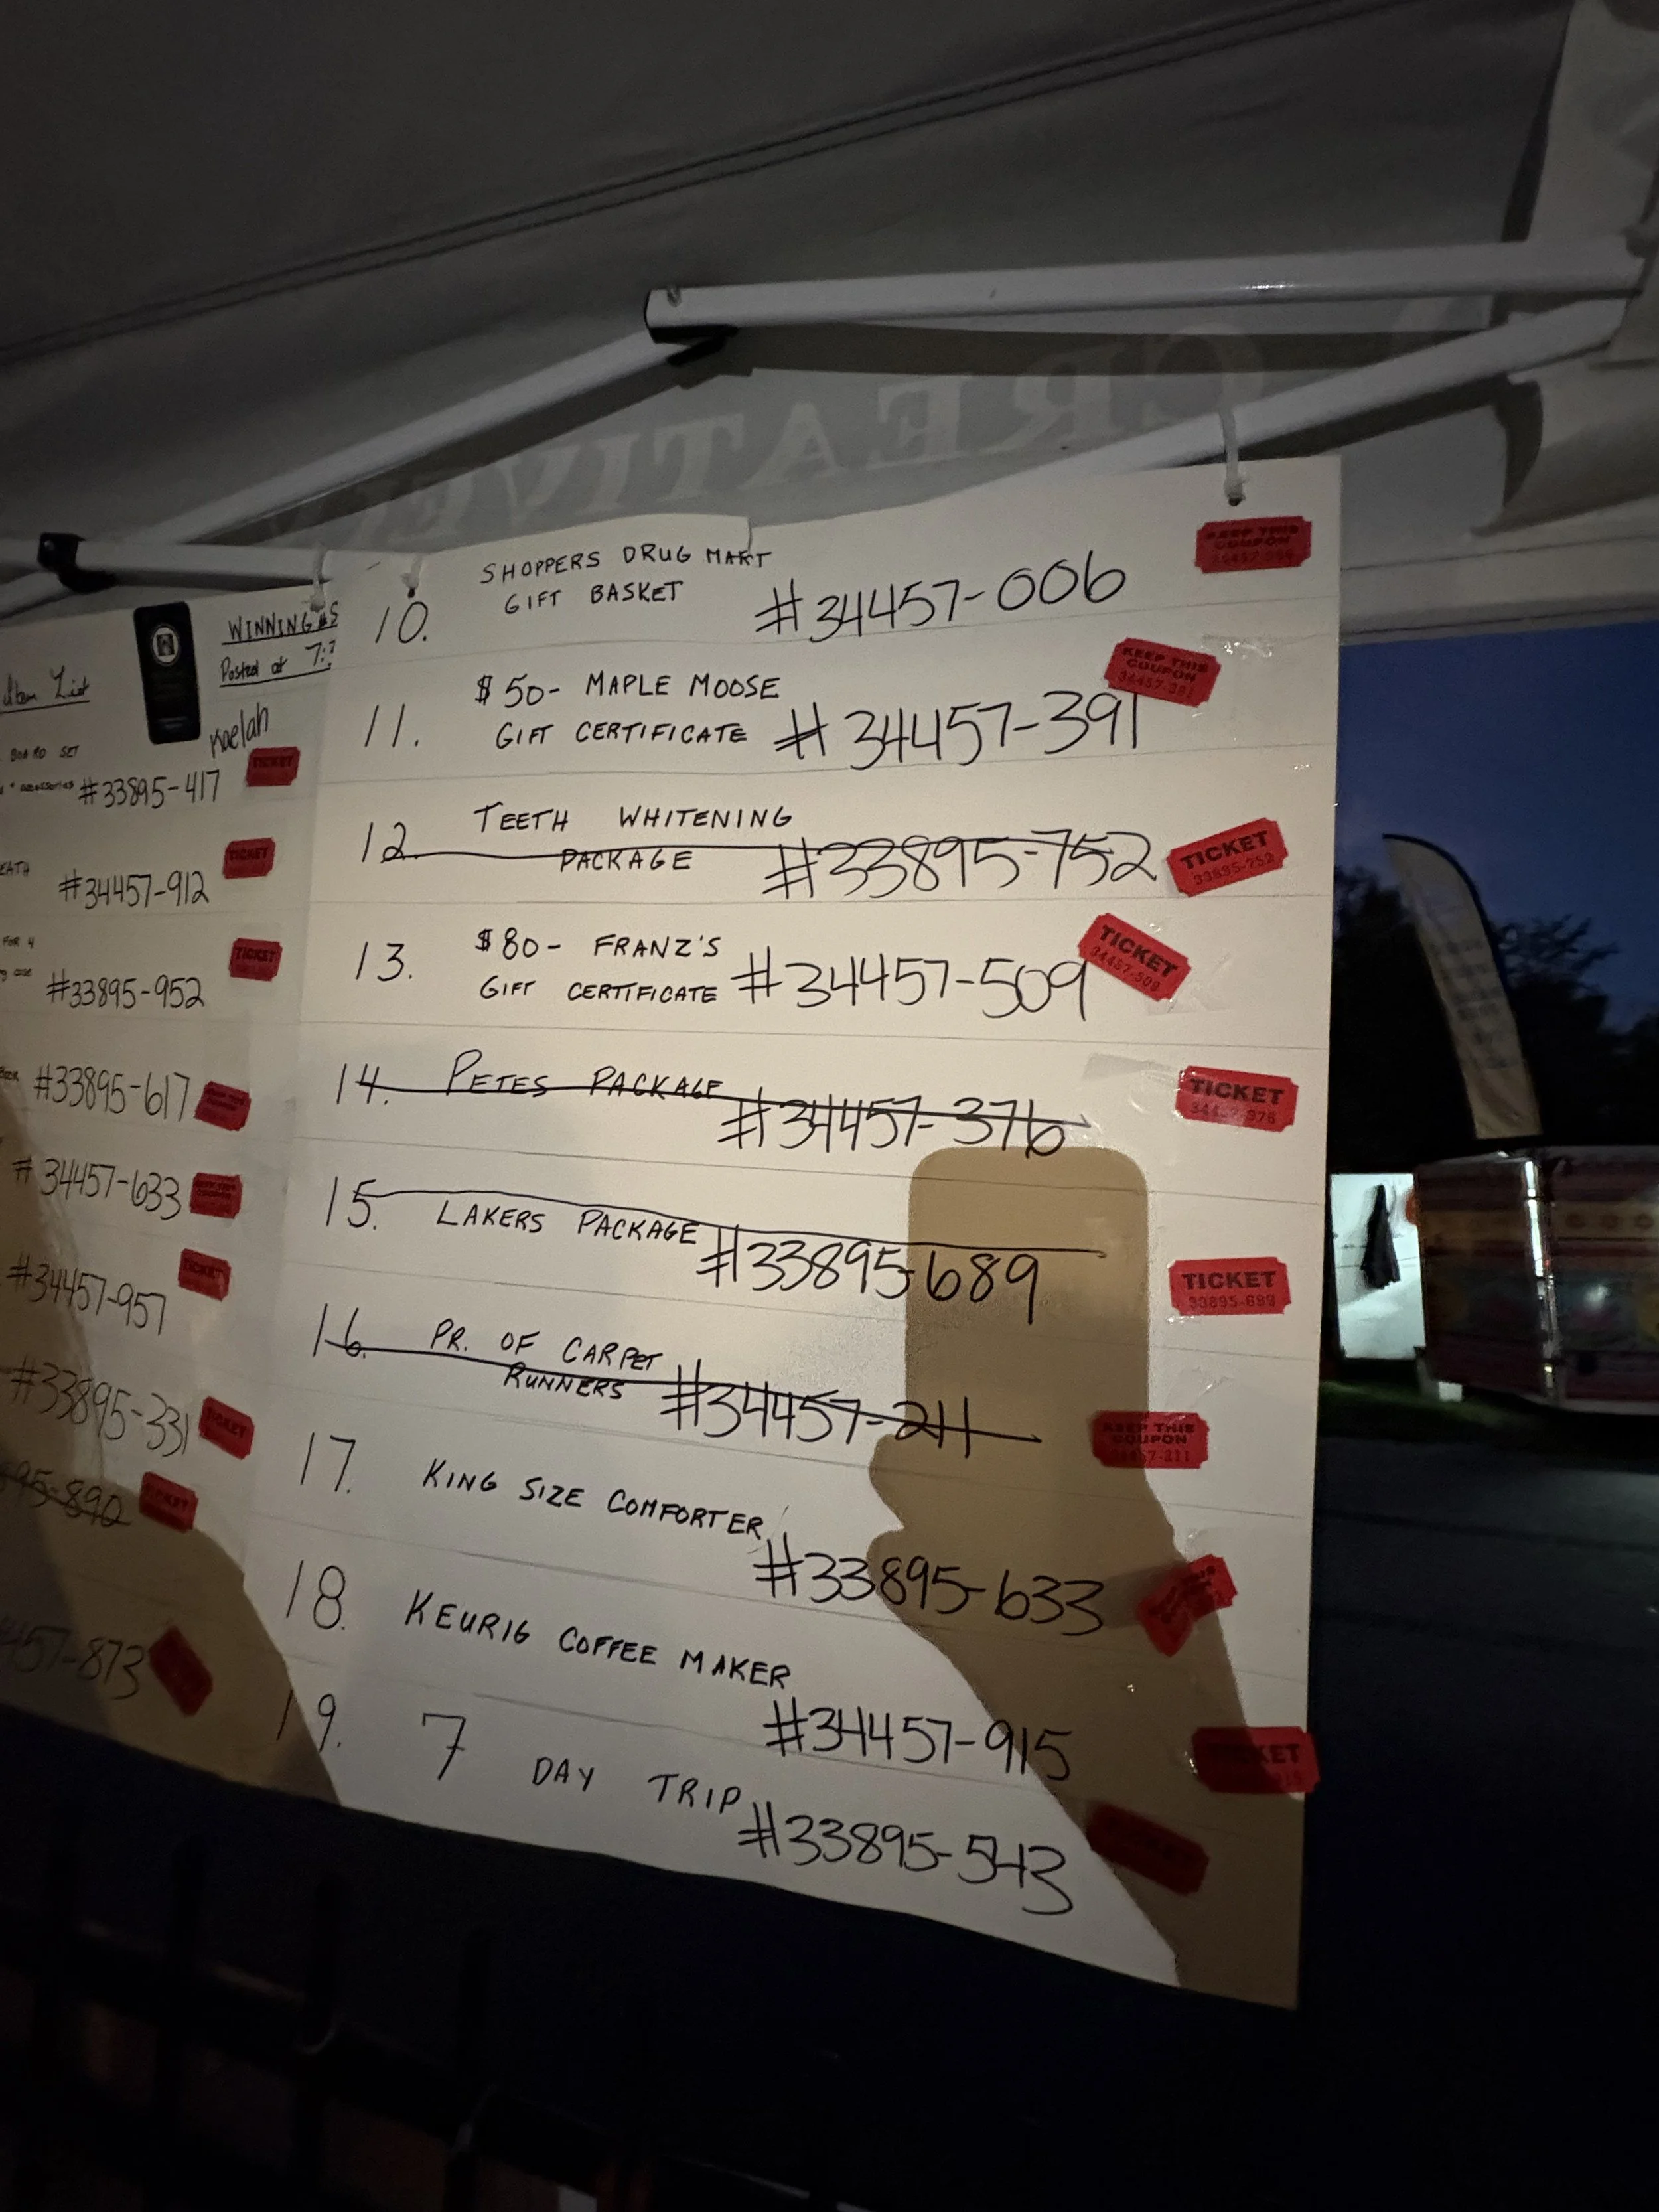 CREATIVE
WINNING #S
Posted at 7:
Item List
Kaelah
BOARD SET
accessories #33895-417
TICKET
#34457-912
TICKET
FOR 4
#33895-952
TICKET
#33895-617
#34457-633
#34457-957
TICKET
#33895-331
TICKET
95-890
TICKET
457-873
10. SHOPPERS DRUG MART
GIFT BASKET
#34457-006
KEEP THIS
COUPON
11. $50- MAPLE MOOSE
GIFT CERTIFICATE #34457-391
KEEP THIS
COUPON
34457-391
12. TEETH WHITENING
PACKAGE #33895-752
TICKET
33895-752
13. $80- FRANZ'S
GIFT CERTIFICATE #34457-509
TICKET
34457-509
14. PETES PACKAGE
#34457-376
TICKET
34457-376
15. LAKERS PACKAGE
#33895-689
TICKET
33895-689
16. PR. OF CARPET
RUNNERS #34457-211
KEEP THIS
COUPON
34457-211
17. KING SIZE COMFORTER
#33895-633
18. KEURIG COFFEE MAKER
#34457-915
TICKET
19. 7 DAY TRIP
#33895-543